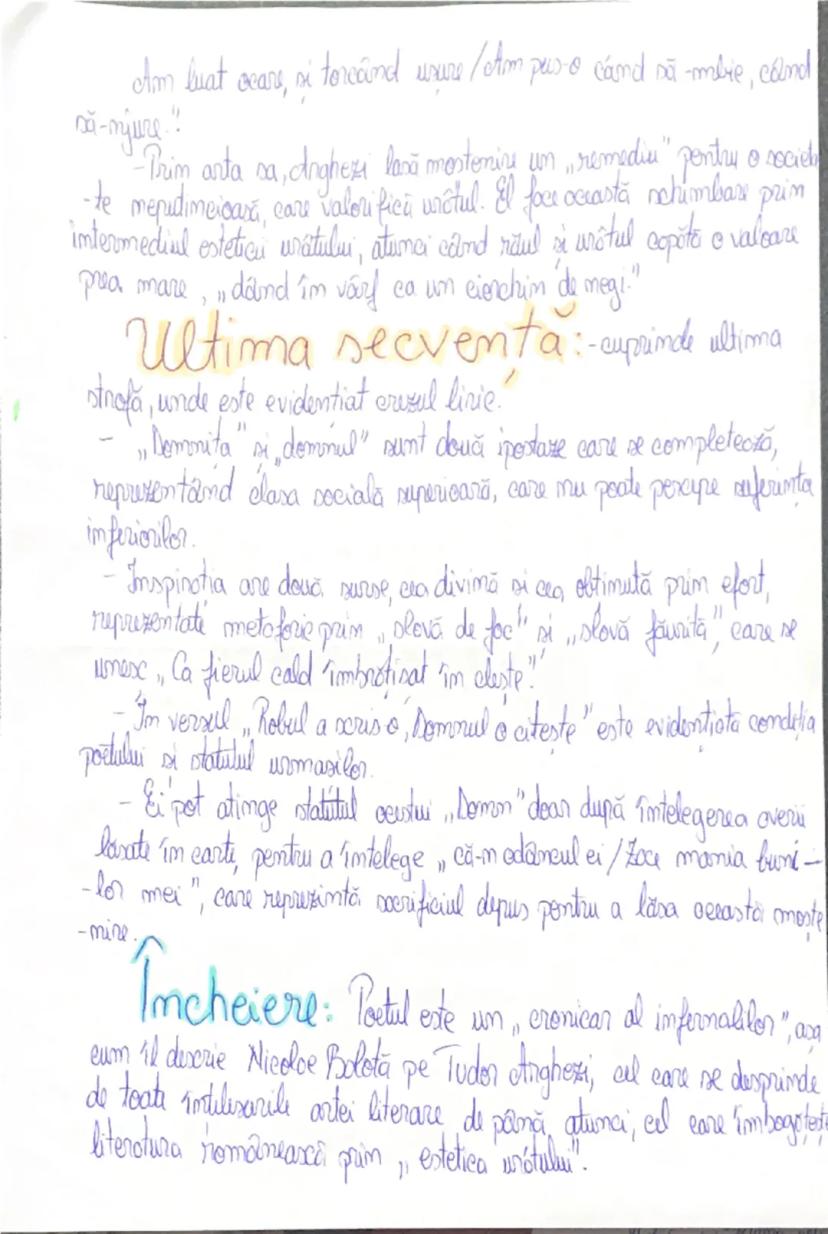 Am luat ocare, și torcând ușure / Am pus-o când să-mbie, când
să-njure."
- Prin arta sa, Arghezi lasă moștenire un „remediu" pentru o societa
-te neputincioasă, care valorifică urâtul. El face această schimbare prin
intermediul esteticii urâtului, atunci când răul și urâtul capătă o valoare
prea mare, „dând în vârf ca un ciorchin de negi."
Ultima secvență: - cuprinde ultima
strofă, unde este evidențiat crezul liric.
- „Domnița" și „domnul" sunt două ipostaze care se completează,
reprezentând clasa socială superioară, care nu poate percepe suferința
inferiorilor.
- Inspirația are două surse, cea divină si cea obtinută prin efort,
reprezentate metaforic prin „slovă de foc" si „slovă făurită", care se
unesc „Ca fierul cald îmbrățișat în clește".
- În versul „Robul a scris-o, Domnul o citește" este evidențiată condiția
poetului si statutul urmasilor.
- Ei pot atinge statutul acestui „Domn" doar după înțelegerea averii
lăsate în carte, pentru a înțelege „că-n adâncul ei / Zace mania buni-
-lor mei", care reprezintă sacrificiul depus pentru a lăsa această mește
-nire.
Încheiere: Poetul este un „cronicar al infernalilor", așa
cum îl descrie Nicolae Balotă pe Tudor Arghezi, cel care se desprinde
de toate artei literare de până atunci, cel care îmbogățește
literatura românească prin „estetica urâtului".